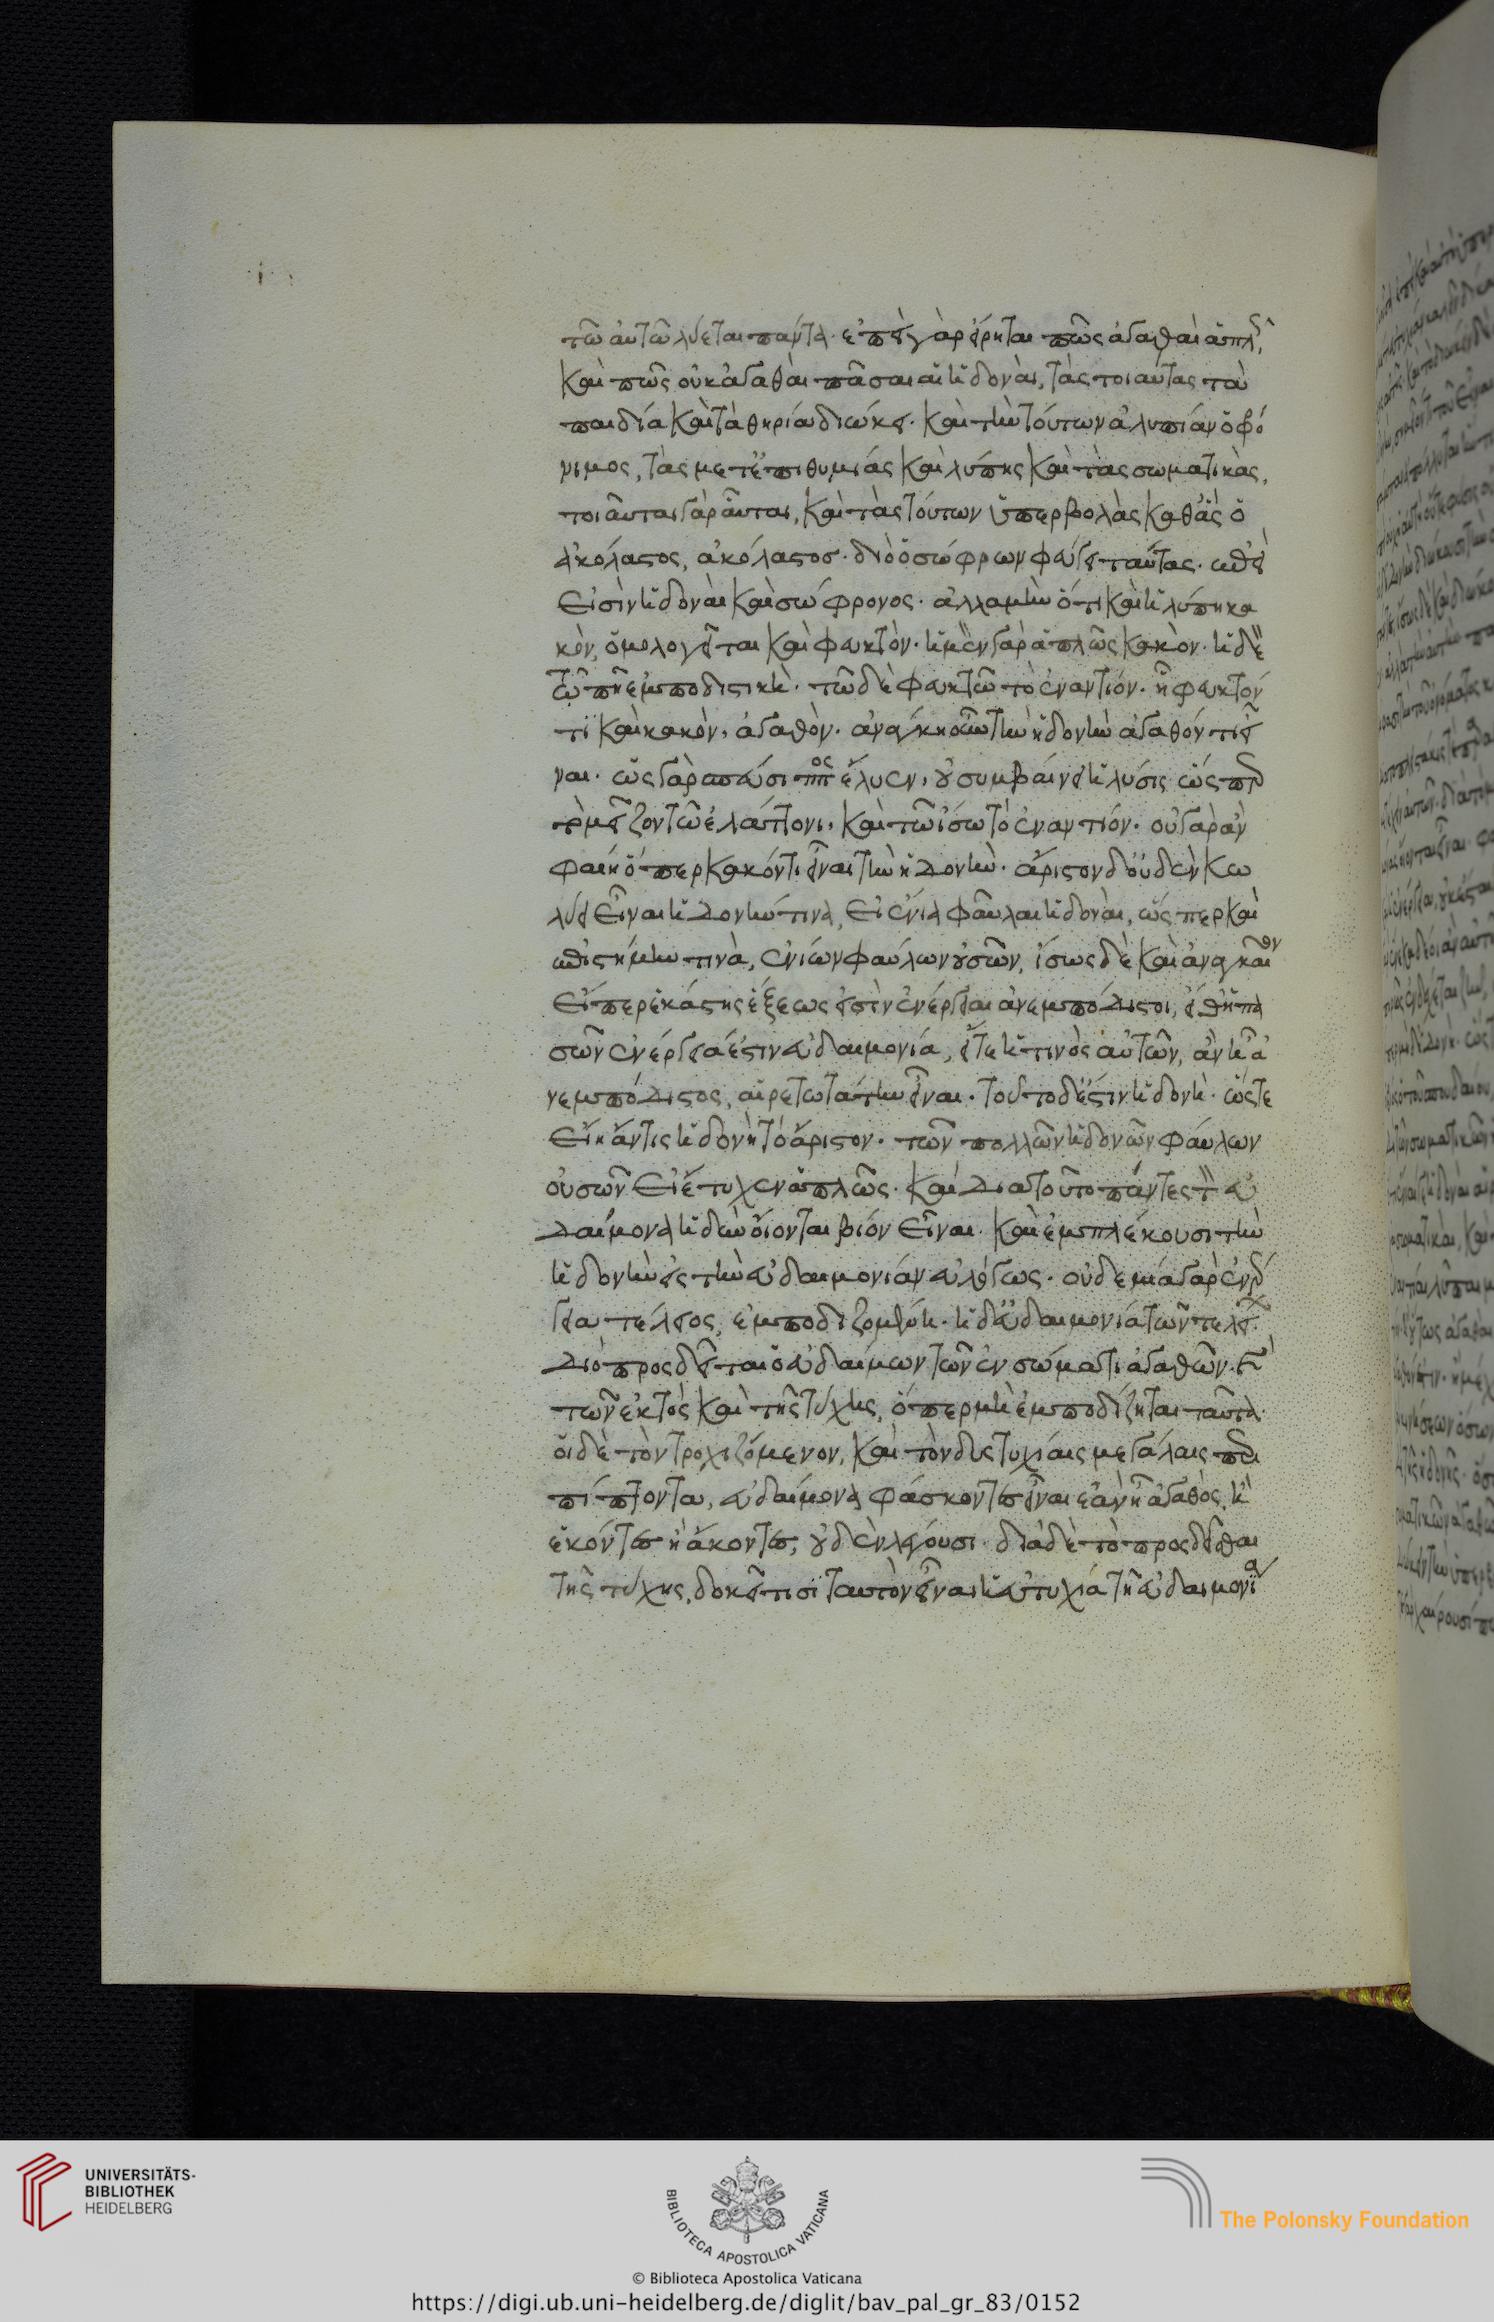 τῷ αὐτῷ λύεται πάντα. ἐπεὶ γὰρ εἴρηται πῶς ἀγαθαὶ ἁπλῶς,
καὶ πῶς οὐκ ἀγαθαὶ πᾶσαι αἱ ἡδοναί, τὰς τοιαύτας τὰ
παιδία καὶ τὰ θηρία διώκει. καὶ τὴν τούτων ἀλυπίαν ὁ φρό
νιμος, τὰς μετ' ἐπιθυμίας καὶ λύπης καὶ τὰς σωματικὰς,
τοιαῦται γὰρ αὗται, καὶ τὰς τούτων ὑπερβολὰς καθ' ἃς ὁ
ἀκόλαστος, ἀκόλαστος. διὸ ὁ σώφρων φεύγει ταύτας. ἐπεὶ
εἰσὶν ἡδοναὶ καὶ σώφρονος. ἀλλὰ μὴν ὅτι καὶ ἡ λύπη κα
κόν, ὁμολογεῖται καὶ φευκτόν. ἡ μὲν γὰρ ἁπλῶς κακὸν. ἡ δὲ
τῷ πῇ ἐμποδιστική. τῷ δὲ φευκτῷ τὸ ἐναντίον. ᾗ φευκτόν
τι καὶ κακὸν, ἀγαθὸν. ἀνάγκη οὖν τὴν ἡδονὴν ἀγαθόν τι εἶ
ναι. ὡς γὰρ Σπεύσιππος ἔλυεν, οὐ συμβαίνει ἡ λύσις ὥσπερ
τὸ μεῖζον τῷ ἐλάττονι, καὶ τῷ ἴσῳ τὸ ἐναντίον. οὐ γὰρ ἂν
φαίη ὅπερ κακόν τι εἶναι τὴν ἡδονήν. ἄριστον δ' οὐδὲν κω
λύει εἶναι ἡδονήν τινα, εἰ ἔνιαι φαῦλαι ἡδοναί, ὥσπερ καὶ
ἐπιστήμην τινὰ, ἐνίων φαύλων οὐσῶν, ἴσως δὲ καὶ ἀναγκαῖον
εἴπερ ἑκάστης ἕξεως εἰσὶν ἐνέργειαι ἀνεμπόδιστοι, εἴθ' ἡ πα
σῶν ἐνέργειά ἐστιν εὐδαιμονία, εἴτε ἡ τινὸς αὐτῶν, ἂν ᾖ ἀ
νεμπόδιστος, αἱρετωτάτην εἶναι. τοῦτο δέ ἐστιν ἡδονή. ὥστε
εἴη ἄν τις ἡδονὴ τὸ ἄριστον. τῶν πολλῶν ἡδονῶν φαύλων
οὐσῶν εἰ ἔτυχεν ἁπλῶς. καὶ διὰ τοῦτο πάντες τὸν εὐ
δαίμονα ἡδὺν οἴονται βίον εἶναι. καὶ ἐμπλέκουσι τὴν
ἡδονὴν εἰς τὴν εὐδαιμονίαν εὐλόγως. οὐδεμία γὰρ ἐνέρ
γεια τέλειος, ἐμποδιζομένη. ἡ δ' εὐδαιμονία τῶν τελείων.
διὸ προσδεῖται ὁ εὐδαίμων τῶν ἐν σώματι ἀγαθῶν. καὶ
τῶν ἐκτὸς καὶ τῆς τύχης, ὅπερ μὴ ἐμποδίζηται ταῦτα.
οἱ δὲ τὸν τροχιζόμενον, καὶ τὸν δυστυχίαις μεγάλαις περι
πίπτοντα, εὐδαίμονα φάσκοντες εἶναι ἐὰν ᾖ ἀγαθὸς, ἢ
ἑκόντες ἢ ἄκοντες, οὐδὲν λέγουσι. διὰ δὲ τὸ προσδεῖσθαι
τῆς τύχης, δοκεῖ τισὶ ταυτὸν εἶναι ἡ εὐτυχία τῇ εὐδαιμονίᾳ
UNIVERSITÄTS-
BIBLIOTHEK
HEIDELBERG
BIBLIOTECA APOSTOLICA VATICANA
The Polonsky Foundation
© Biblioteca Apostolica Vaticana
https://digi.ub.uni-heidelberg.de/diglit/bav_pal_gr_83/0152